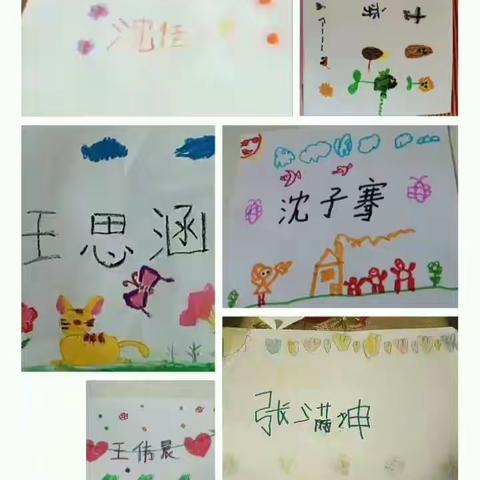 沈佳
王思涵
沈子骞
王晨
张满坤